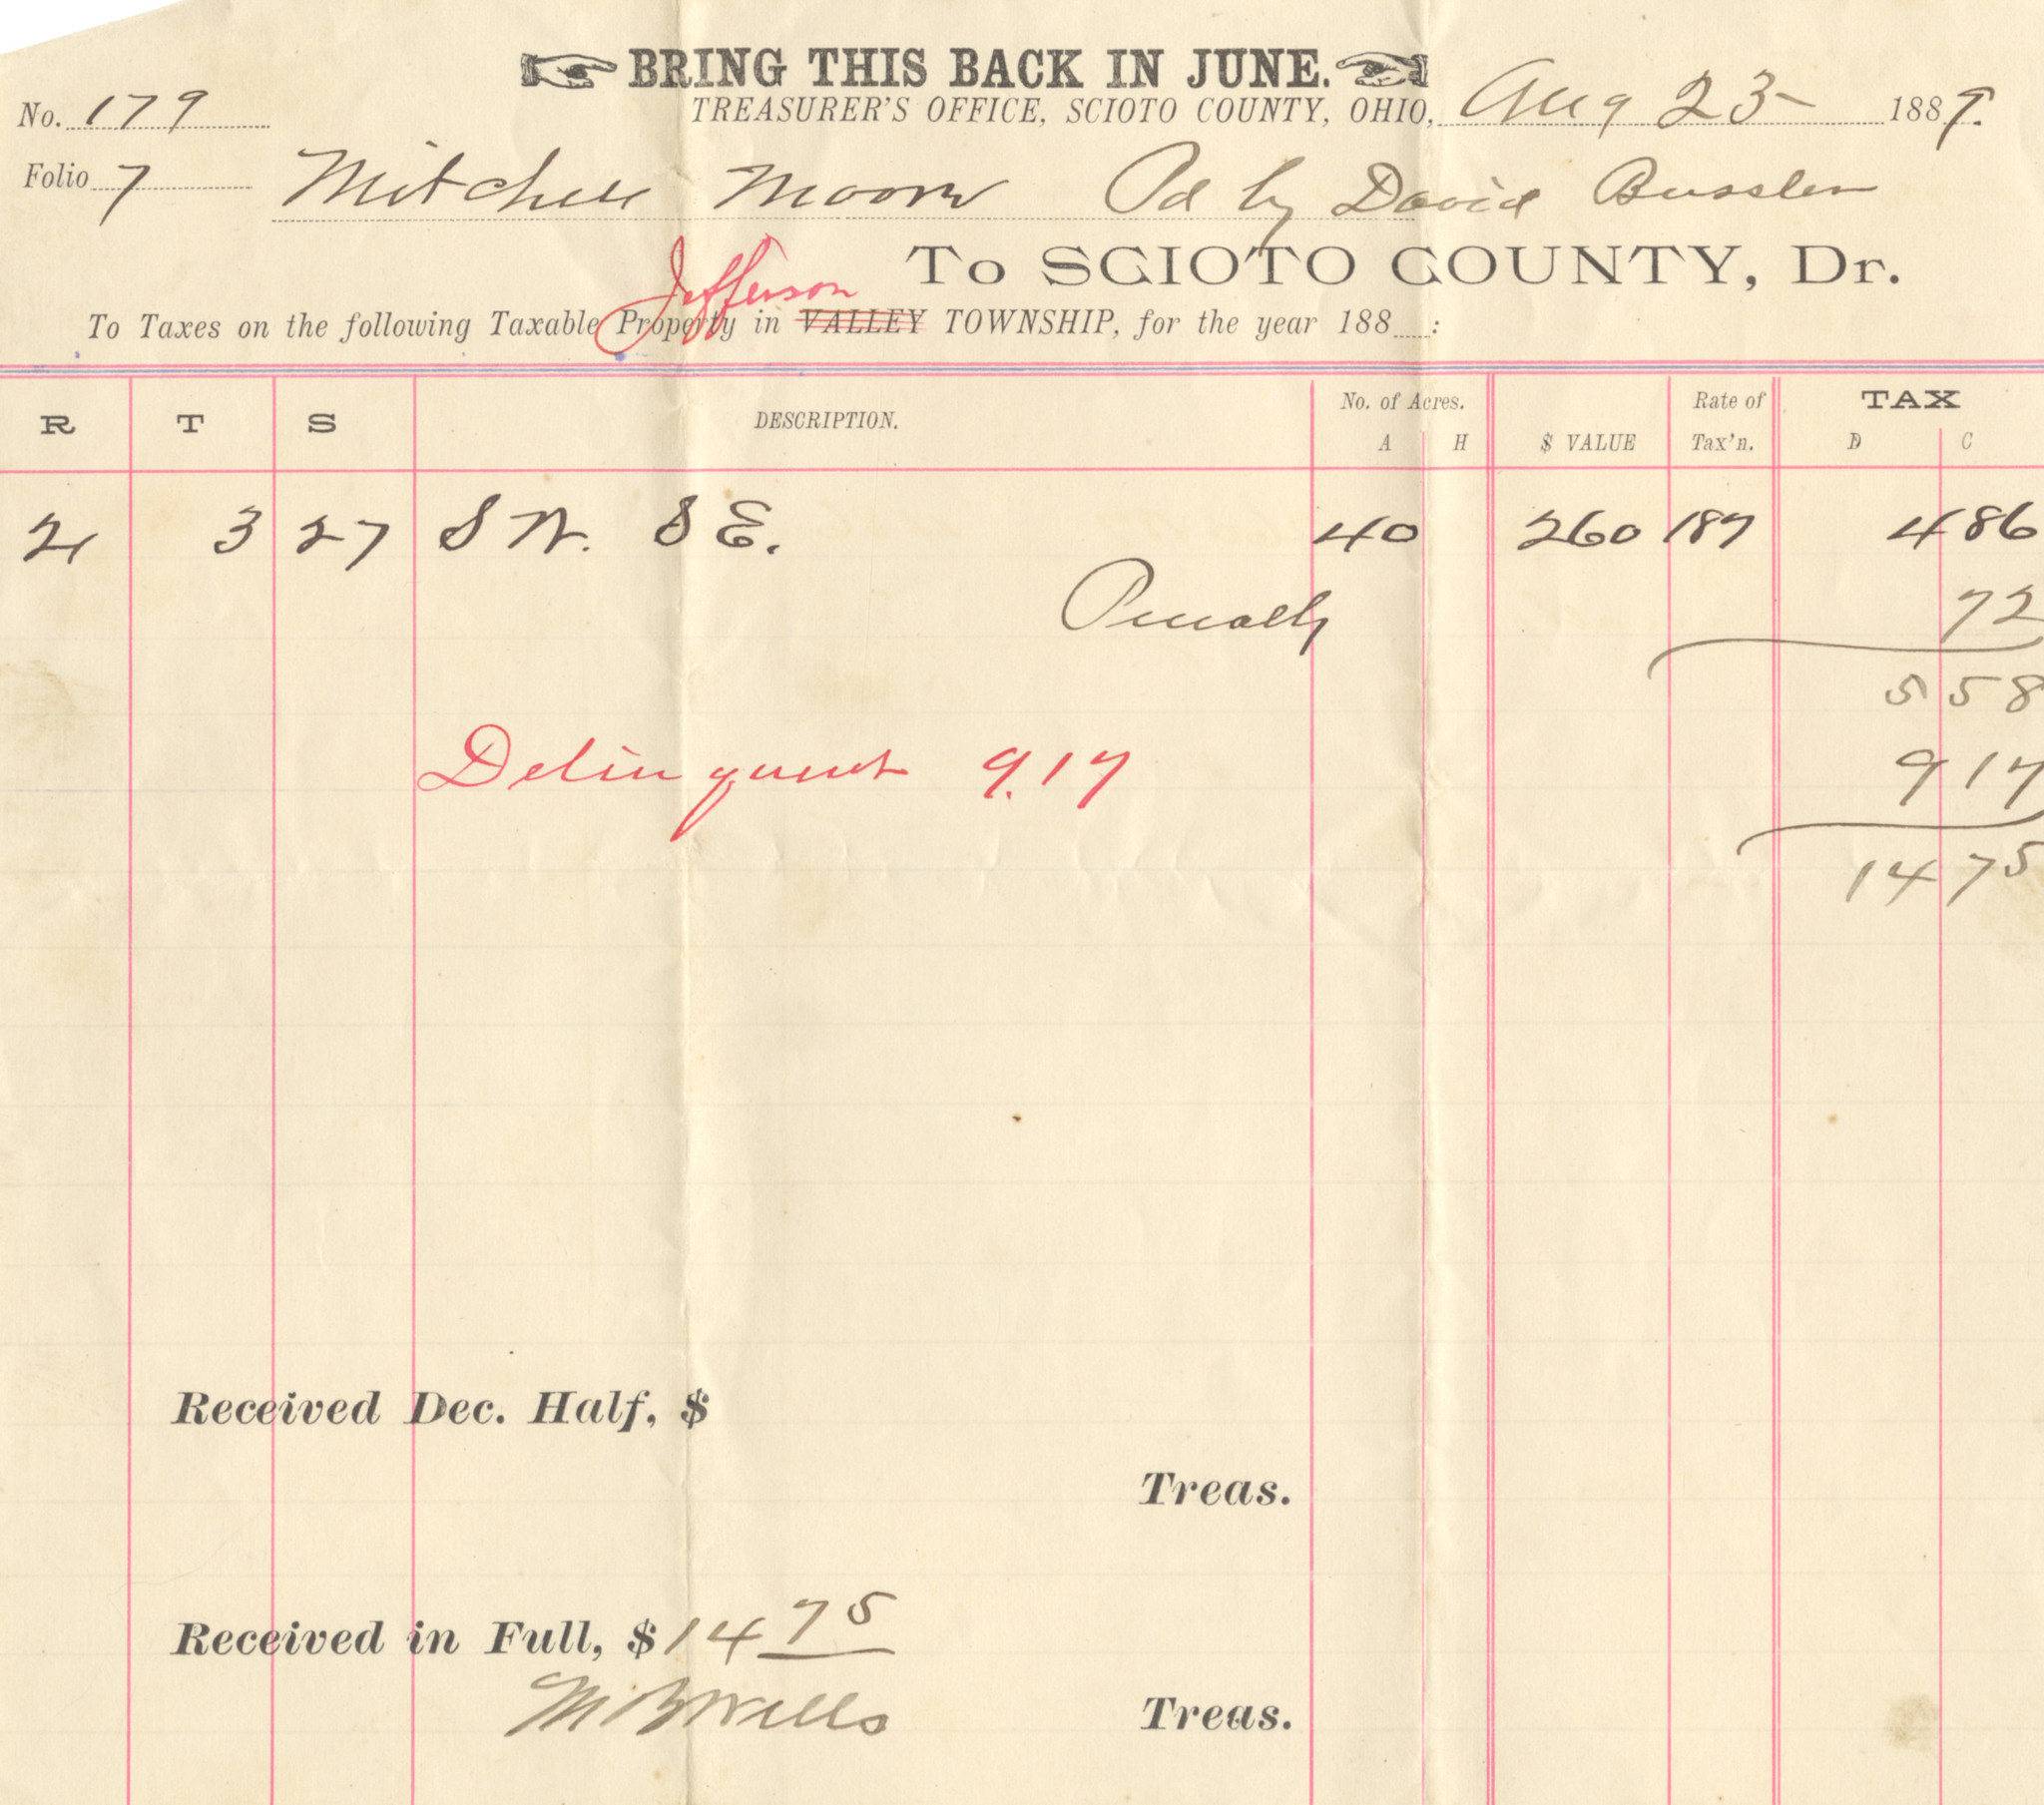 BRING THIS BACK IN JUNE.
No. 179 TREASURER'S OFFICE, SCIOTO COUNTY, OHIO, Aug 23 1889.
Folio 7 Mitchell Moore Pd by David Bussler
To SCIOTO COUNTY, Dr.
Jefferson
To Taxes on the following Taxable Property in VALLEY TOWNSHIP, for the year 188 :
R T S DESCRIPTION. No. of Acres. A H $ VALUE Rate of Tax'n. TAX D C
21 3 27 S W. S E. 40 260 187 4 86
Penalty 72
5 58
Delinquent 9.17 9 17
14 75
Received Dec. Half, $
Treas.
Received in Full, $ 14 75
M B Wells Treas.